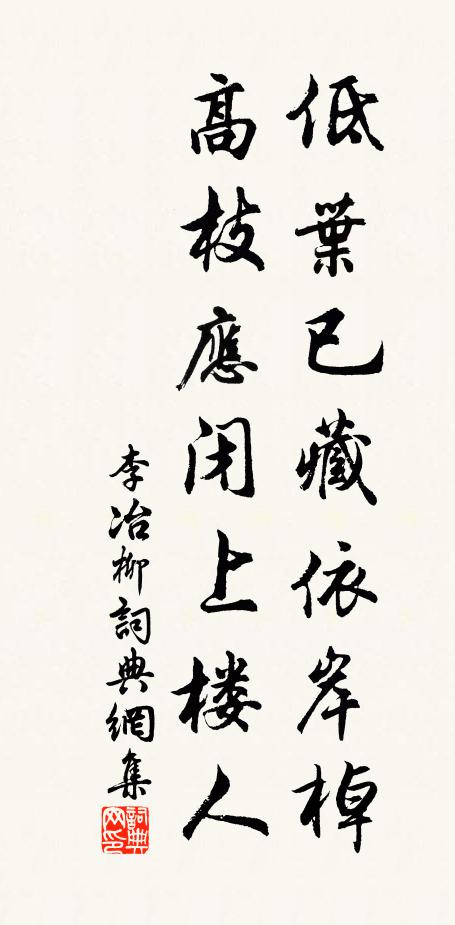 低葉已藏依岸棹
高枝應闭上楼人
李冶柳詞典網集
詞典網印